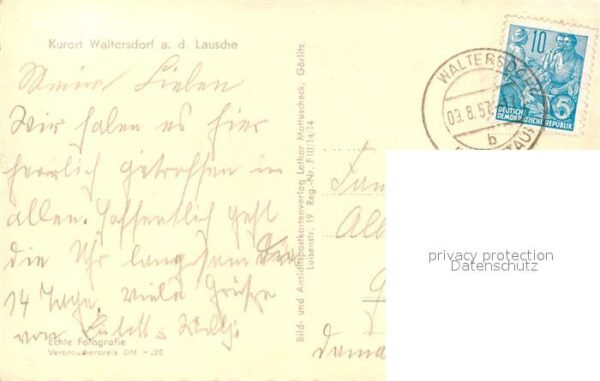 Kurort Waltersdorf a. d. Lausche
Meine Lieben
Wir haben es hier
herrlich getroffen in
allem. Hoffentlich geht
die Uhr langsam die
14 Tage. Viele Grüße
von
Echte Fotografie
Verbraucherpreis DM -.20
Bild- und Ansichtspostkartenverlag Lothar Matruscheck, Görlitz
Luisenstr. 19 Reg.-Nr. F III 14 74
WALTERSDORF
09.8.57
b
10
5
DEUTSCHE
DEMOKRATISCHE REPUBLIK
Fam
privacy protection
Datenschutz